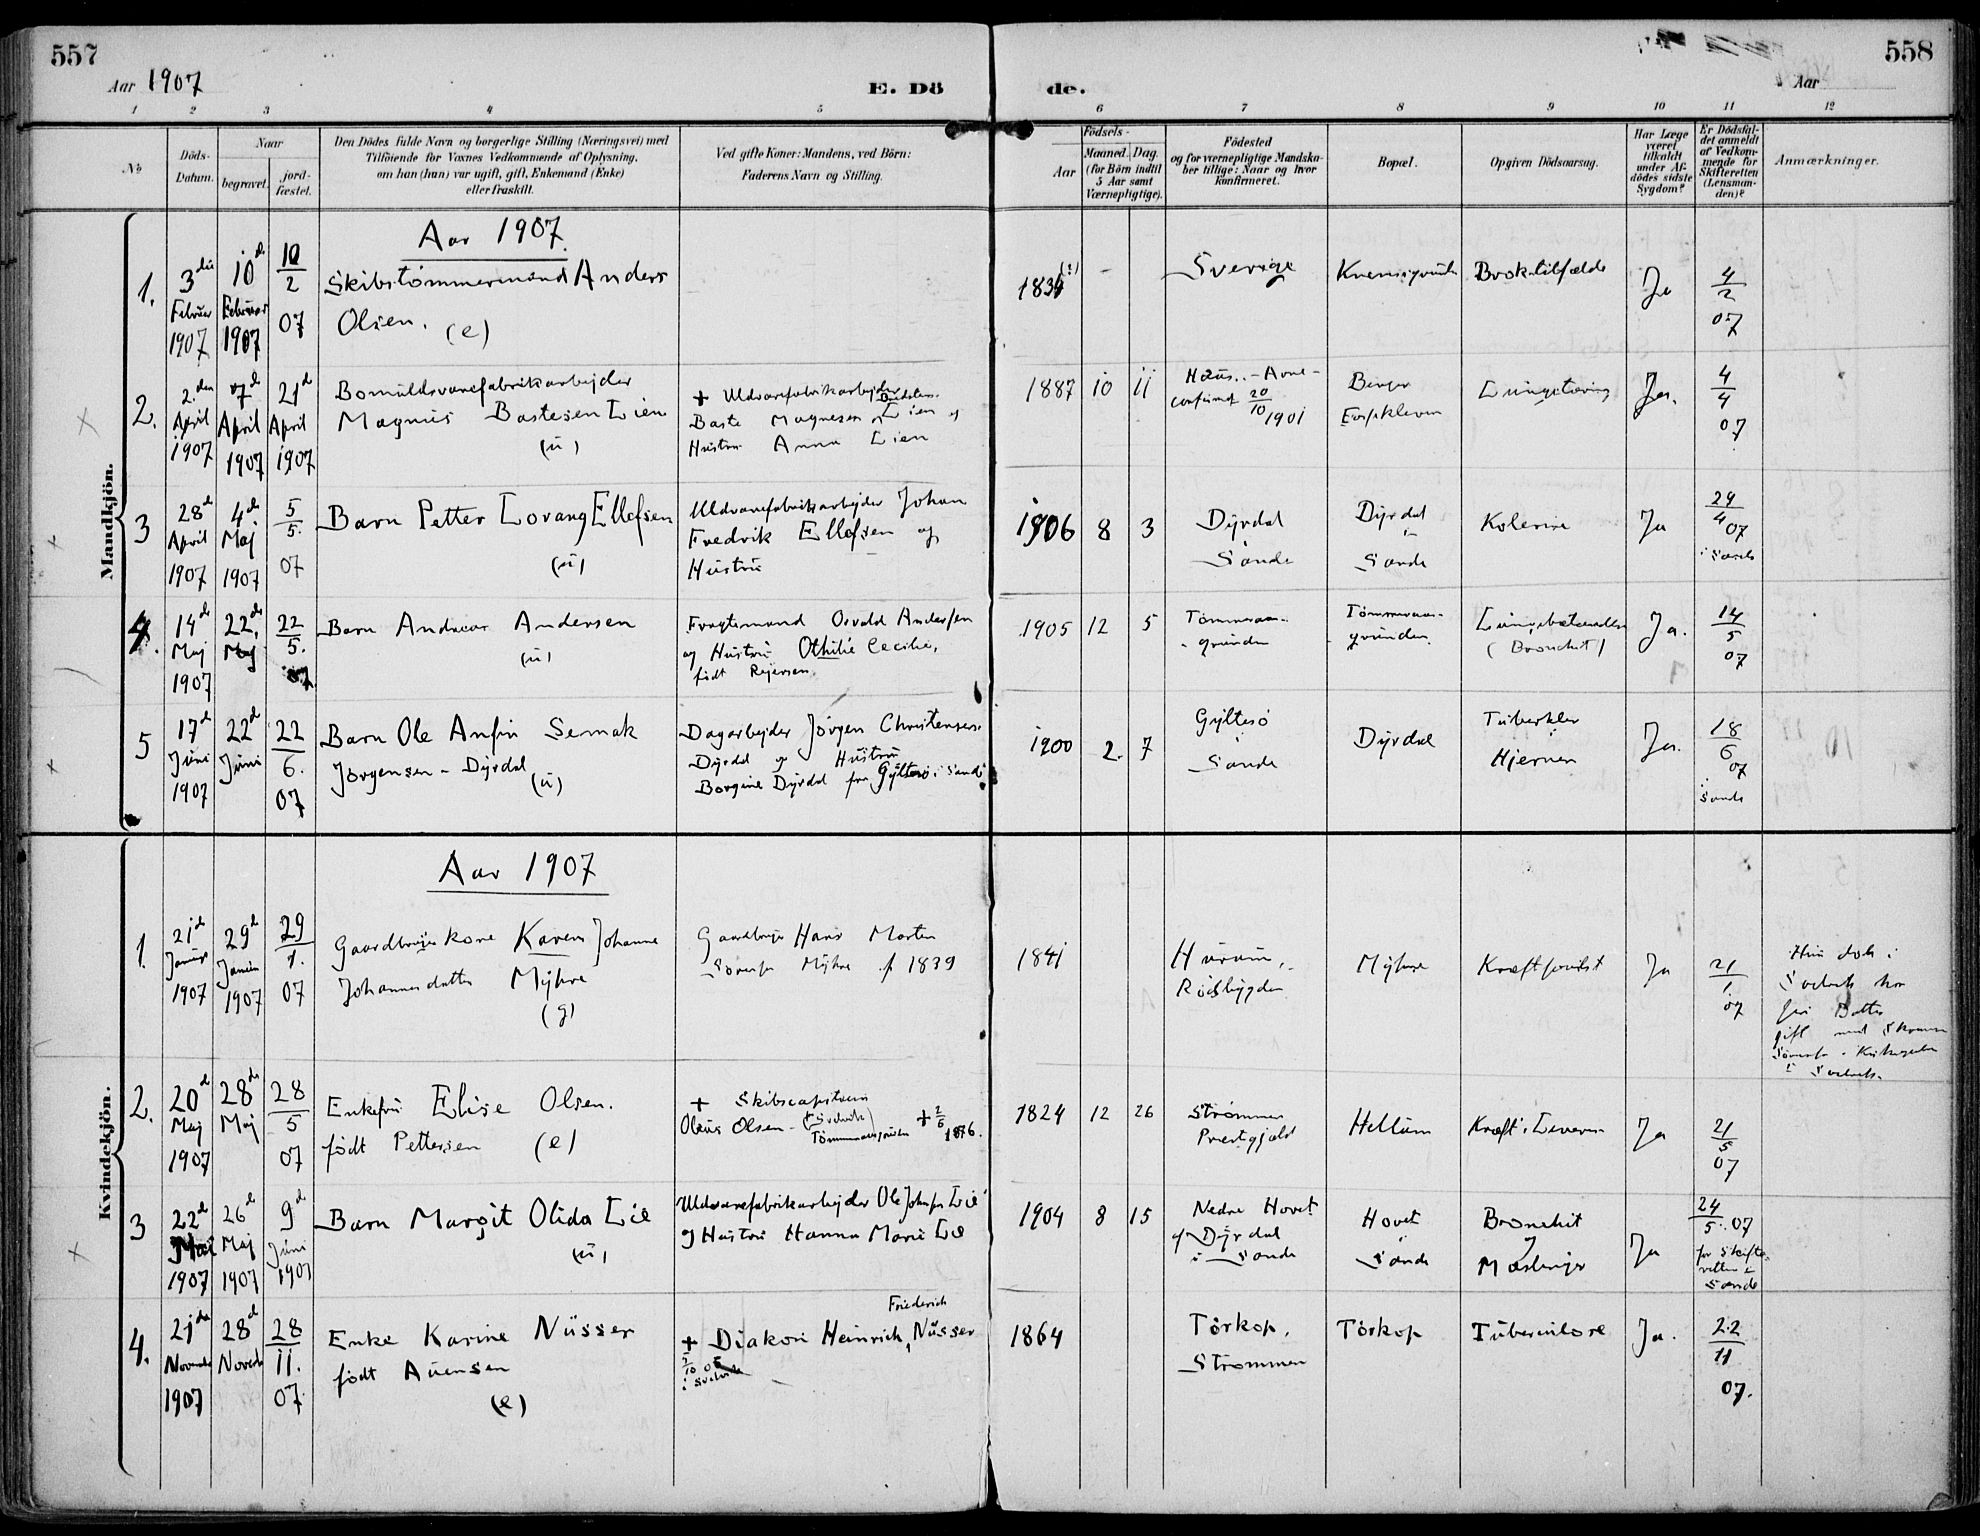 557
558
Aar 1907
E. Dö
de.
Aar
1 2 3 4 5 6 7 8 9 10 11 12
No
Döds-
Datum.
Naar
begravet.
jord-
fæstet.
Den Dödes fulde Navn og borgerlige Stilling (Næringsvei) med
Tilföiende for Voxnes Vedkommende af Oplysning,
om han (hun) var ugift, gift, Enkemand (Enke)
eller fraskilt.
Ved gifte Koner: Mandens, ved Börn:
Faderens Navn og Stilling.
Födsels-
Aar
Maaned.
Dag.
(for Börn indtil
5 Aar samt
Værnepligtige).
Födested
og for værnepligtige Mandska-
ber tillige: Naar og hvor
konfirmeret.
Bopæl.
Opgiven Dödsaarsag.
Har Læge
været
tilkaldt
under Af-
dödes sidste
Sygdom?
Er Dödsfal-
det anmeldt
af Vedkom-
mende for
Skifteretten
(Lensman-
den)?
Anmærkninger.
Mandkjön.
Aar 1907
1.
3die
Februar
1907
10d
Februar
1907
10
2
07
Skibstömmermand Anders
Olsen. (e)
1834 (?)
-
Sverige
Broktilfælde
Ja
4
2
07
2.
2den
April
1907
7d
April
1907
21d
April
1907
Bomuldsvarefabrikarbejder
Magnus Bastesen Lien
(u)
+ Uldvarefabrikarbejder
Baste Magnesen Lien og
Hustru Anna Lien
1887 10 11
Haus - Arne -
confirmert 20
10 1901
Berger
Ja.
4
4
07
3
28d
April
1907
4de
Maj
1907
5
5.
07
Barn Petter Lorang Ellefsen
(u)
Uldvarefabrikarbejder Johan
Fredrik Ellefsen og
Hustru
1906 8 3
Dyrdal
i
Sande
Dyrdal
i
Sande
Kolerine
Ja
29
4 07
i Sande
4.
14d
Maj
1907
22de
Maj
22
5.
07
Barn Andreas Andersen
(u)
Fragtemand Osvald Andersen
og Hustru Othilie Cecilie,
født Rejersen
1905 12 5
Tömmeraas-
grunden
Tömmeraas-
grunden
Lungebetændelse
(Bronchit)
Ja.
14
5
07
5
17d
Juni
1907
22d
Juni
22
6.
07
Barn Ole Anfin Semak
Jörgensen - Dyrdal
(u)
Dagarbejder Jörgen Christensen
Dyrdal og Hustru
Borgine Dyrdal fra Gyltesö i Sande
1900 2. 7
Gyltesö
i
Sande
Dyrdal
Tuberkler
i
Hjernen
Ja.
18
6
07
i
Sande
Kvindekjön.
Aar 1907
1.
21d
Januar
1907
29d
Januar
1907
29
1.
07
Gaardbruger kone Karen Johanne
Johannesdatter Myhre
(g)
Gaardbruger Hans Morten
Sörensen Myhre f. 1839
1841
Hurum,
Rödsbygden
Myhre
Ja
21
1
07
Hun døde i
Svelvik hos
sin Datter
gift med
i Svelvik.
2.
20d
Maj
1907
28de
Maj
28
5
07
Enkefru Elise Olsen.
født Pettersen (e)
+ Skibscaptein
Olaus Olsen - (Svelvik)
Tömmeraasgrunden + 2
6 1876.
1824 12 26
Strömmen
Præstegjæld
Hellum
Kræft i Leveren
Ja
21
5
07
3
22d
Mai
1907
26d
Maj
1907
9d
Juni
1907
Barn Margit Olida Lie
(u)
Uldvarefabrikarbejder Ole Johnsen Lie
og Hustru Hanna Marie Lie
1904 8 15
Nedre Hovet
af Dyrdal
i Sande
Hovet
i
Sande
Bronchit
og
Mæslinger
Ja
24
5. 07
for Skifte-
retten i
Sande
4.
21de
Novembe
1907
28d
Novembe
28
11.
07
Enke Karine Nüsser
født Auensen
(e)
+ Diakon Heinrich Friederich Nüsser
2
10 05
i Svelvik
1864
Törkop,
Strömmen
Törkop
Tuberculose
Ja.
22
11
07.